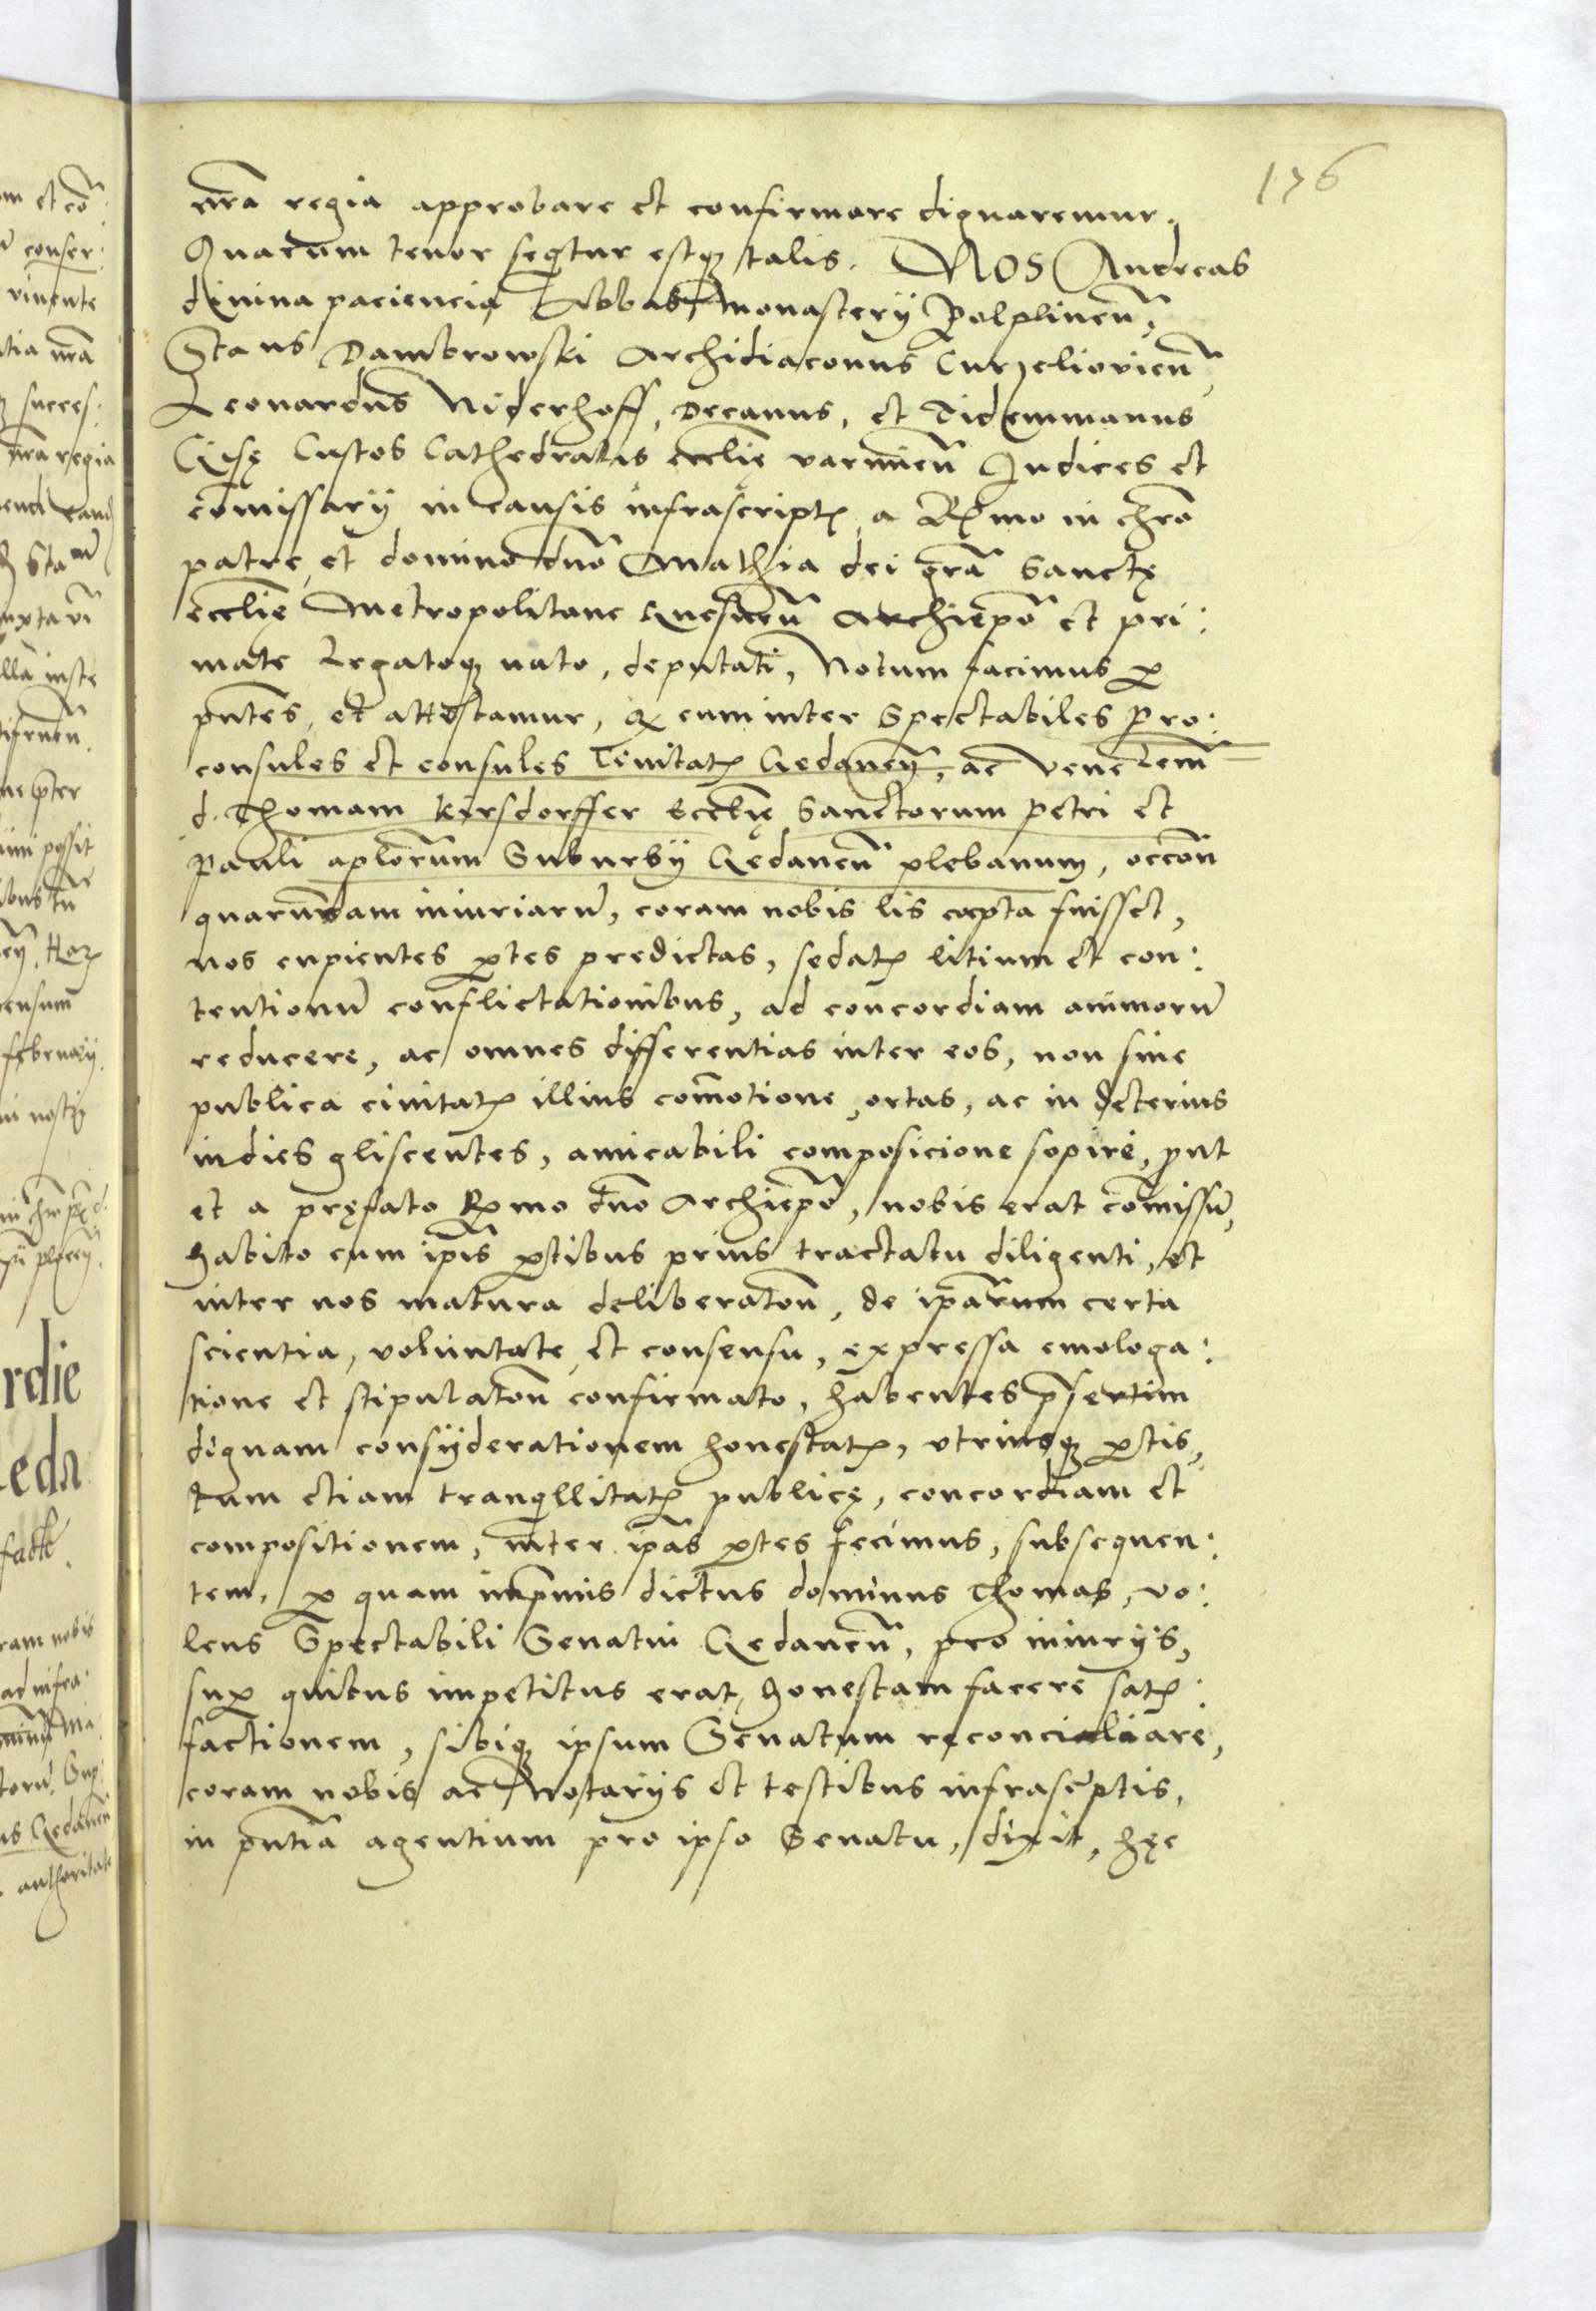 176
nr̃a regia approbare et confirmare dignaremur.
Quarum tenor seqͥtur estqꝫ talis. NOS Andreas
divina paciencia Abbas monasterij Polplineñ,
Sta⁹ Dambrowski Archidiaconus Curzelioviēn,
Leonardus Niderhoff, Decanus, et Tidemmanus
Gisę Custos Cathedralis ecclię varmieñ Judices et
cōmissarij in causis infrascriptꝭ a Rͫmo in chrō
patre et domino dnō Mathia dei grã Sanctę
ecclię Metropolitane Gnesneñ Archiepō et pri:
mate Legatoqꝫ nato, deputati, Notum facimus ꝑ
pñtes, et attestamur, ꝙ cum inter Spectabiles Pro:
consules et consules Civitatꝭ Gedaneñ, ac veneᵇˡᵉᵐ
d. Thomam Kirsdorffer Ecclię Sanctorum Petri et
Pauli aplorum Suburbij Gedaneñ plebanum, occõñ
quarundam iniuriarū, coram nobis lis cœpta fuisset,
nos cupientes ꝑtes predictas, sedatꝭ litium et con:
tentionū conflictationibus, ad concordiam animorū
reducere, ac omnes differentias inter eos, non sine
publica civitatꝭ illius com̄otione ortas, ac in deterius
indies gliscentes, amicabili composicione sopire, ꝓut
et a pręfato Rͫmo dnō Archiepō, nobis erat cōmissū,
habito cum ipĩs ꝑtibus prius tractatu diligenti, et
inter nos matura deliberatõñ, de ipãrum certa
scientia, voluntate et consensu, expressa emologa:
tione et stipulatõñ confirmato, habentes p̃sertim
dignam consyderationem honestatꝭ, utriusqꝫ ꝑtis,
tum etiam tranqͥllitatꝭ publicę, concordiam et
compositionem, inter ipãs ꝑtes fecimus, subsequen:
tem, ꝑ quam inpͥmis dictus dominus Thomas, vo:
lens Spectabili Senatui Gedaneñ, pro iniurijs,
suꝑ quibus impetitus erat, honestam facere satꝭ:
factionem, sibiqꝫ ipsum Senatum reconciliare,
coram nobis ac Notarijs et testibus infrascͥptis,
in pñtia agentium pro ipso Senatu, dixit, hęc